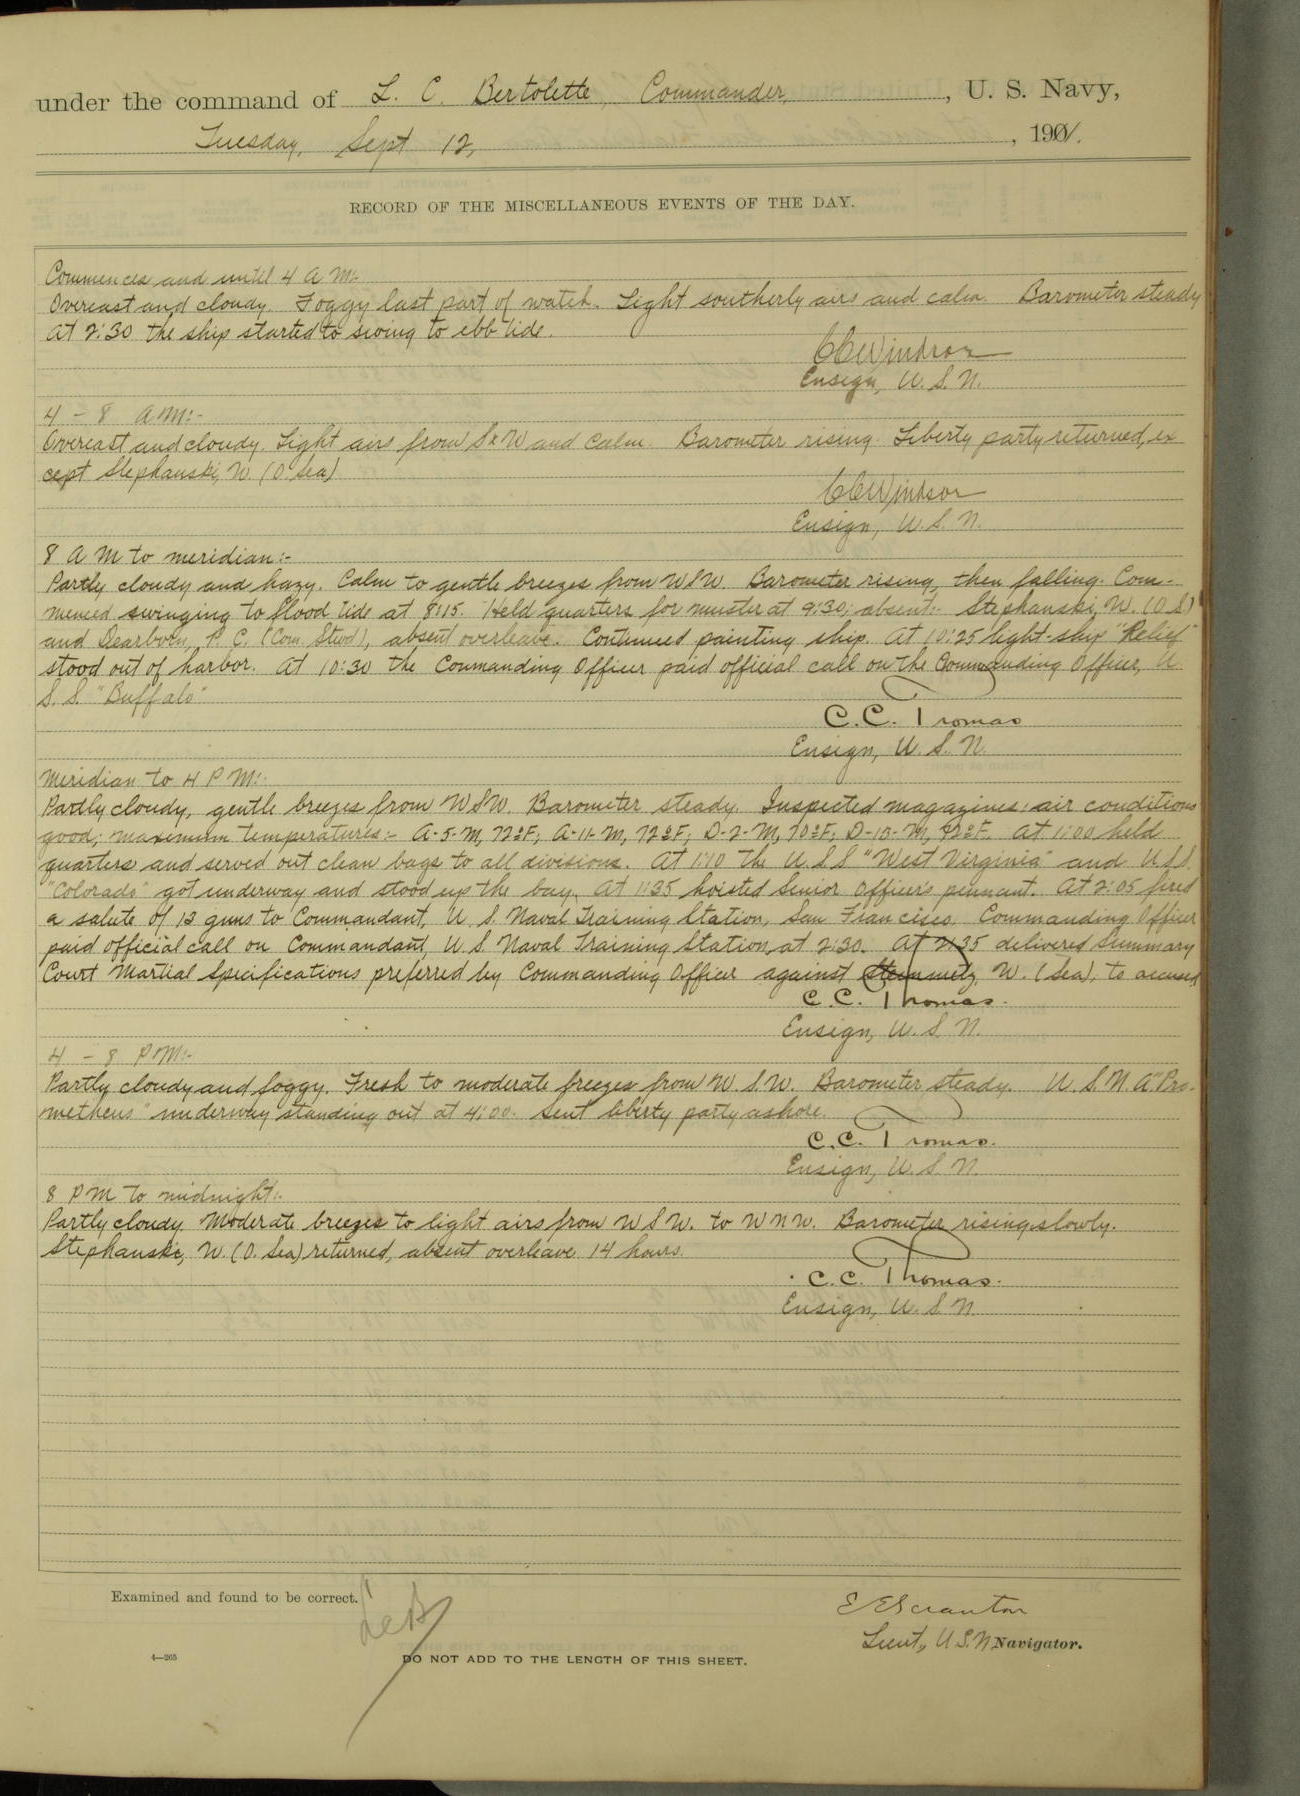 under the command of L. C. Bertolette, Commander, , U. S. Navy,
Tuesday, Sept 12, , 1901.
RECORD OF THE MISCELLANEOUS EVENTS OF THE DAY.
Commences and until 4 A M:-
Overcast and cloudy. Foggy last part of watch. Light southerly airs and calm. Barometer steady
At 2:30 the ship started to swing to ebb tide.
C C Windsor
Ensign, U. S. N.
4 - 8 A M:-
Overcast and cloudy. Light airs from SxW and calm. Barometer rising. Liberty party returned, ex
cept Stephanski, W. (O. Sea)
C C Windsor
Ensign, U. S. N.
8 A M to meridian:-
Partly cloudy and hazy. Calm to gentle breezes from WSW. Barometer rising, then falling. Com-
menced swinging to flood tide at 8:15. Held quarters for muster at 9:30; absent:- Stephanski, W. (O S)
and Dearborn, C. (Com. Stwd), absent overleave. Continued painting ship. At 10:25 light-ship "Relief"
stood out of harbor. At 10:30 the Commanding Officer paid official call on the Commanding Officer, U.
S. S. "Buffalo"
C. C. Thomas
Ensign, U. S. N.
Meridian to 4 P M:-
Partly cloudy, gentle breezes from WSW. Barometer steady. Inspected magazines: air conditions
good; maximum temperatures:- A-5-M, 72°F; A-11-M, 72°F; D-2-M, 70°F; D-15-M, °F. At 1:00 held
quarters and served out clean bags to all divisions. At 1:10 the U. S S "West Virginia" and U.S.S.
"Colorado" got underway and stood up the bay. At 1:35 hoisted Senior Officer's pennant. At 2:05 fired
a salute of 13 guns to Commandant, U. S. Naval Training Station, San Francisco. Commanding Officer
paid official call on Commandant, U. S. Naval Training Station, at 2:30. At 2:35 delivered Summary
Court Martial Specifications preferred by Commanding Officer against Steinmetz, W. (Sea), to accused
C. C. Thomas.
Ensign, U. S. N.
4 - 8 P M:-
Partly cloudy and foggy. Fresh to moderate breezes from W. S. W. Barometer steady. U. S. N. A "Pro-
metheus" underway standing out at 4:00. Sent liberty party ashore.
C. C. Thomas.
Ensign, U. S. N.
8 P M to midnight:-
Partly cloudy. Moderate breezes to light airs from WSW. to WNW. Barometer rising slowly.
Stephanski, W. (O. Sea) returned, absent overleave 14 hours.
C. C. Thomas.
Ensign, U. S. N.
Examined and found to be correct.
LCB
E E Scranton
Lieut, U.S.N. Navigator.
4—265
DO NOT ADD TO THE LENGTH OF THIS SHEET.